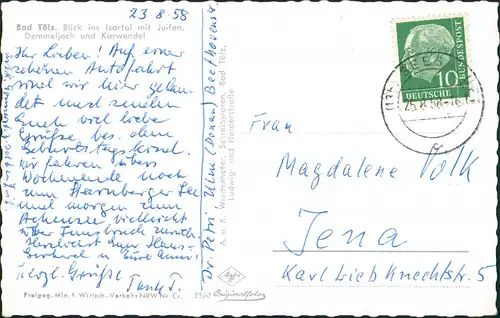 23.8.58
Bad Tölz. Blick ins Isartal mit Juifen,
Demmeljoch und Karwendel
Ihr Lieben! Auf einer
schönen Autofahrt
sind wir hier gelan-
det und senden
Euch viel liebe
Grüße bes. dem
Geburtstagskind.
Wir fahren übers
Wochenende noch
zum Starnberger See
und morgen zum
Achensee vielleicht
über Innsbruck zurück
Herzl. Grüße
Tante T.
Freigeg. Min. f. Wirtsch.-Verkehr NRW Nr. Cr.
Dr. Petri Ulm (Donau) Beethovenstr
Ludwig- und Herderstraße
2500 Originalfoto
Agfa
10
DEUTSCHE
BUNDESPOST
25.8.58-16
Frau
Magdalene Volk
Jena
Karl Liebknechtstr. 5